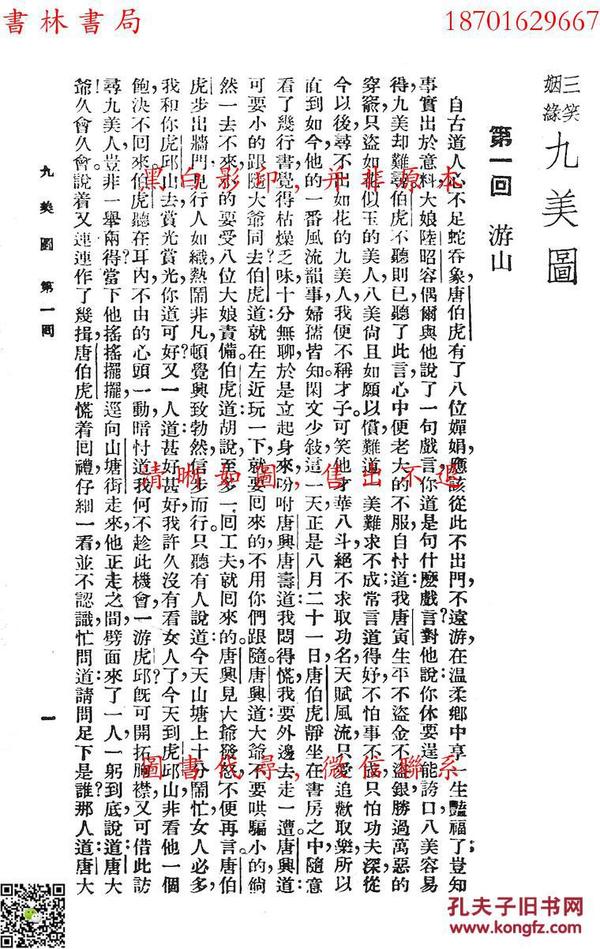 書林書局
18701629667
三笑姻緣
九美圖
第一回 游山
自古道人心不足蛇吞象，唐伯虎有了八位嬋娟，應該從此不出門，不遠游，在溫柔鄉中享一生豔福了，豈知
事實出於意料，大娘陸昭容偶爾與他說了一句戲言，你道是句什麽戲言？對他說，你休要逞能誇口，八美容易
得，九美却難尋，伯虎不聽則已，聽了此言，心中便老大的不服，自忖道：我唐寅生平不盜金，不盜銀，勝過萬惡的
穿窬，只盜如花似玉的美人，八美尙且如願以償，難道一美難求不成，常言道得好，不怕事不成，只怕功夫深，從
今以後，尋不出如花的九美人，我便不稱才子。可笑他才華八斗，絕不求取功名，天賦風流，只愛追歡取樂，所以
直到如今，他的一番風流韻事，婦孺皆知。閑文少敍，這一天正是八月二十一日，唐伯虎靜坐在書房之中，隨意
看了幾行書，覺得枯燥乏味，十分無聊，於是立起身來，吩咐唐興唐壽道：我悶得慌，我要外邊去走一遭。唐興道：
可要小的跟隨大爺同去？伯虎道：就在左近玩一下，就要回來的，不用你們跟隨。唐興道：大爺不要哄騙小的，倘
然一去不來，小的要受八位大娘責備。伯虎道：胡說，至多一回工夫就回來的。唐興見大爺發怒，不便再言。唐伯
虎步出牆門，見行人如織，熱鬧非凡，頓覺興致勃然，信步而行，只聽有人說道：今天山塘上十分鬧忙，女人必多，
我和你虎邱山去賞光賞光，你道可好？又一人道：甚好甚好，我許久沒有看女人了，今天到虎邱山非看他一個
飽，決不回來。伯虎聽在耳內，不由的心頭一動，暗忖道：我何不趁此機會，一游虎邱，旣可開拓胸襟，又可借此訪
尋九美人，豈非一舉兩得？當下他搖搖擺擺，逕向山塘街走來，他正走之間，劈面來了一人，一躬到底，說道：唐大
爺久會久會。說着又連連作了幾揖，唐伯虎慌着回禮，仔細一看，並不認識，忙問道：請問足下是誰？那人道：唐大
九美圖 第一回
一
黑白影印，并非原本
清晰如圖，售出不退
圖書代尋，微信聯系
孔夫子旧书网
www.kongfz.com